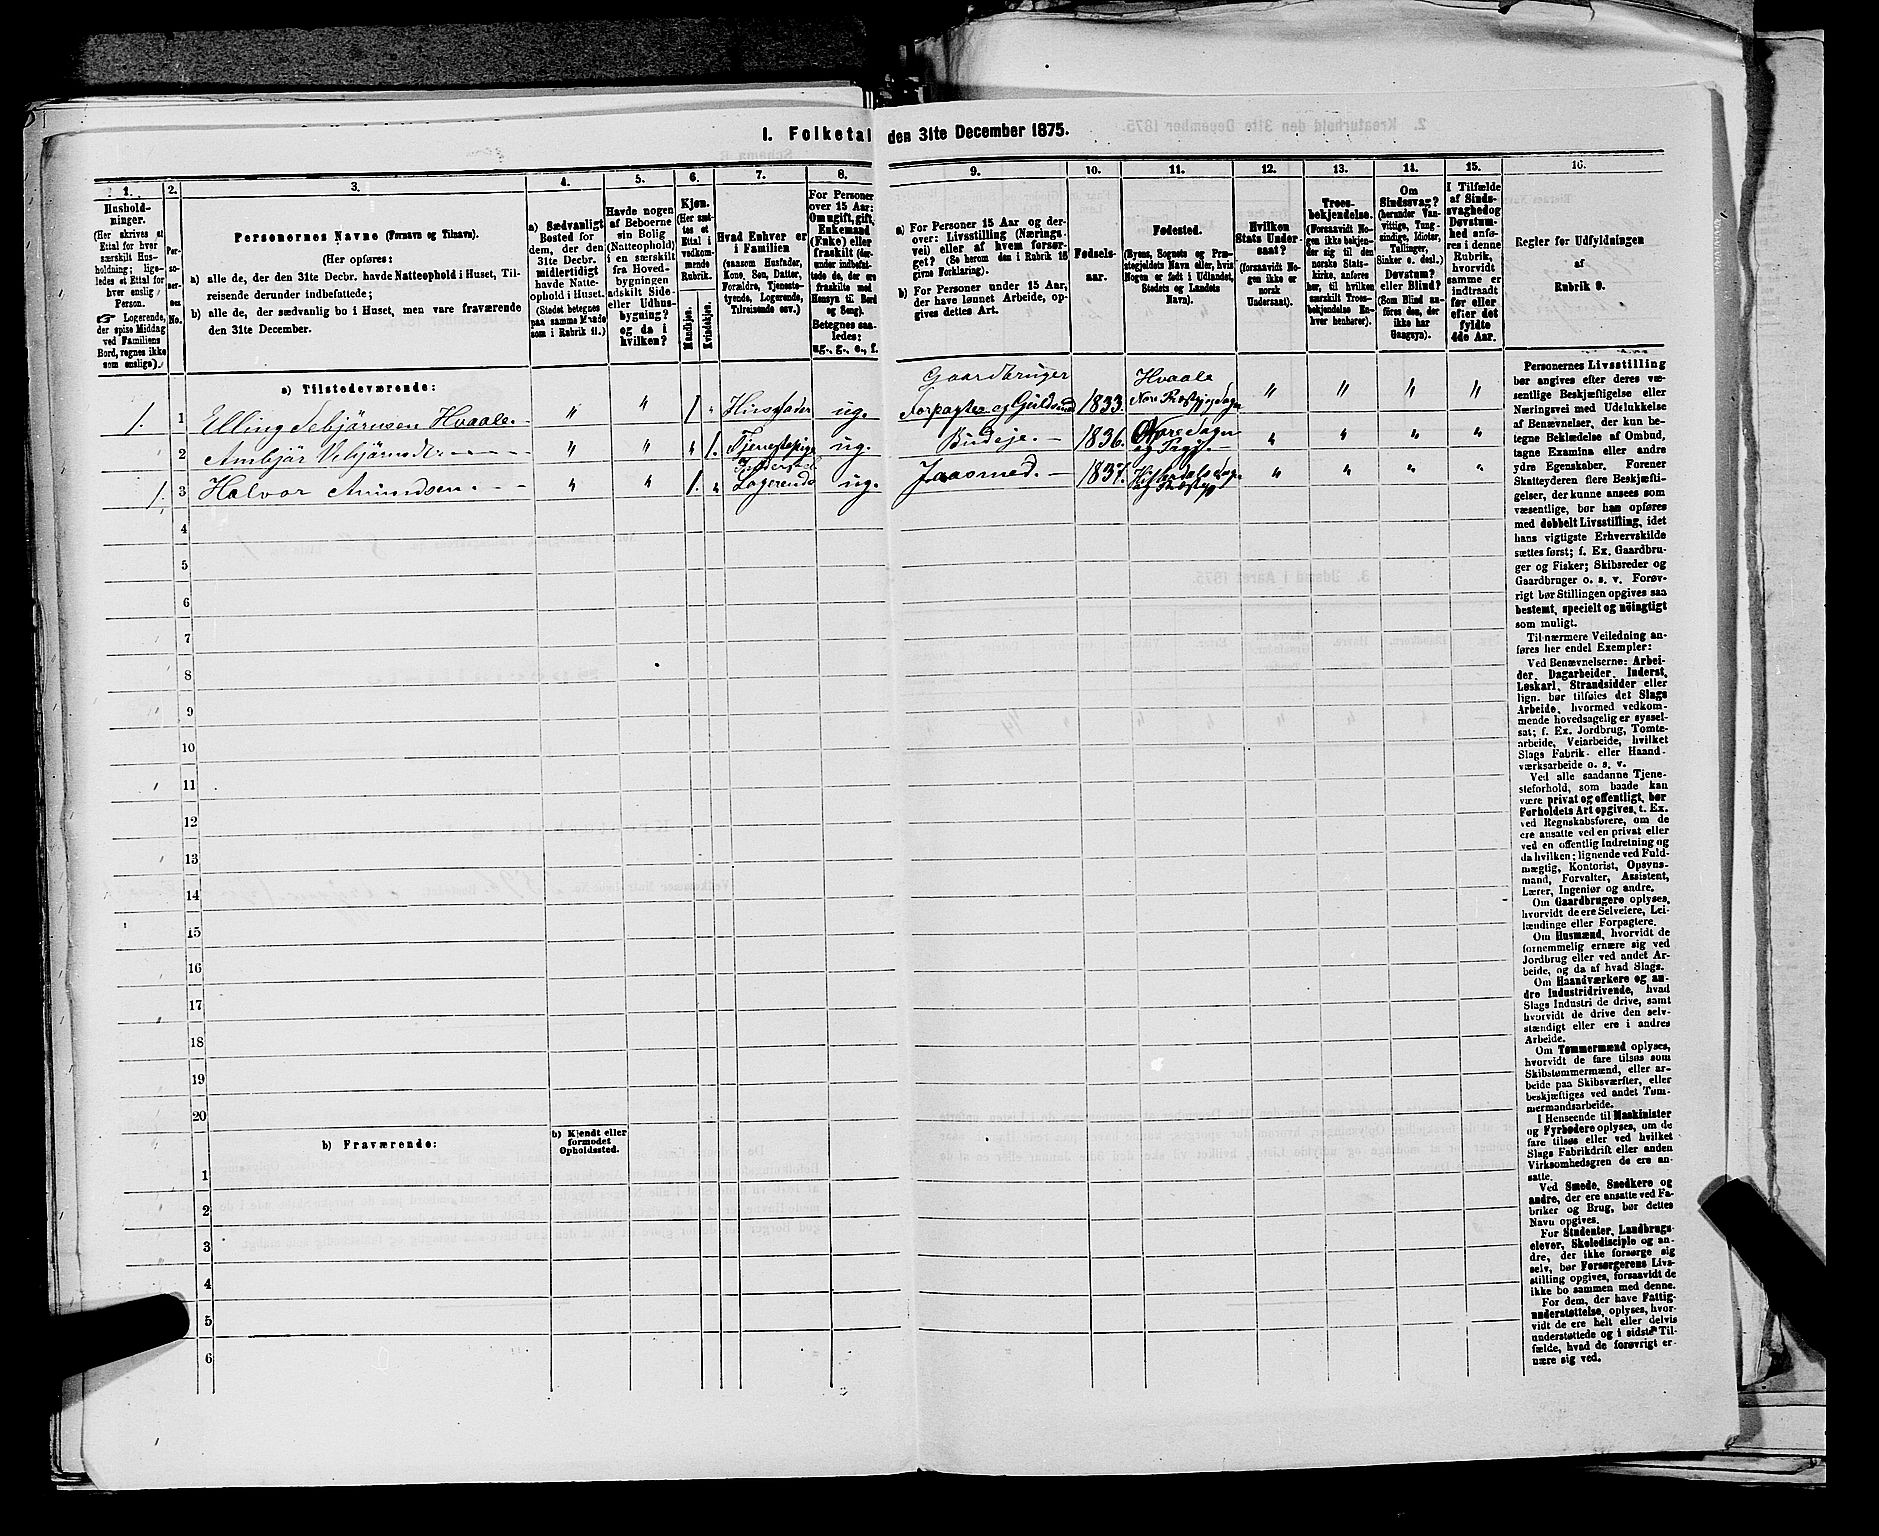 I. Folketal den 31te December 1875.
1.
Hushold-
ninger.
(Her skrives et
Ettal for hver
særskilt Hus-
holdning; lige-
ledes et Ettal for
hver enslig
Person.
☞ Logerende,
der spise Middag
ved Familiens
Bord, regnes ikke
som enslige).
2.
Per-
so-
ner-
nes
No.
3.
Personernes Navne (Fornavn og Tilnavn).
(Her opføres:
a) alle de, der den 31te Decbr. havde Natteophold i Huset, Til-
reisende derunder indbefattede;
b) alle de, der sædvanlig bo i Huset, men vare fraværende
den 31te December.
4.
a) Sædvanligt
Bosted for
dem, der den
31te Decbr.
midlertidigt
havde Natte-
ophold i Huset.
(Stedet betegnes
paa samme Maade
som i Rubrik 11.)
5.
Havde nogen
af Beboerne
sin Bolig
(Natteophold)
i en særskilt
fra Hoved-
bygningen
adskilt Side-
eller Udhus-
bygning?
og da i
hvilken?
6.
Kjøn.
(Her sæt-
tes et
Ettal i
vedkom-
mende
Rubrik.
Mandkjøn.
Kvindekjøn.
7.
Hvad Enhver er
i Familien
(saasom Husfader,
Kone, Søn, Datter,
Forældre, Tjeneste-
tyende, Logerende,
Tilreisende osv.)
8.
For Personer
over 15 Aar:
Om ugift, gift,
Enkemand
(Enke) eller
fraskilt (der-
under indbefat-
tede de, der ere
fraskilte med
Hensyn til Bord
og Seng).
Betegnes saa-
ledes:
ug., g., e., f.
9.
a) For Personer 15 Aar og der-
over: Livsstilling (Nærings-
vei) eller af hvem forsør-
get? (Se herom den i Rubrik 16
givne Forklaring).
b) For Personer under 15 Aar,
der have lønnet Arbeide, op-
gives dettes Art.
10.
Fødsels-
aar.
11.
Fødested.
(Byens, Sognets og Præ-
stegjeldets Navn eller, hvis
Nogen er født i Udlandet,
Stedets og Landets
Navn).
12.
Hvilken
Stats Under-
saat?
(forsaavidt No-
gen ikke er
norsk
Undersaat).
13.
Troes-
bekjendelse.
(Forsaavidt No-
gen ikke bekjen-
der sig til den
norske Stats-
kirke, anføres
her, til hvilken
særskilt Troes-
bekjendelse En-
hver henhører).
14.
Om
Sindssvag?
(herunder Van-
vittige, Tung-
sindige, Idioter,
Tullinger,
Sinker o. desl.)
Døvstum?
eller Blind?
(Som Blind an-
føres den, der
ikke har
Gangsyn).
15.
I Tilfælde
af Sinds-
svaghed og
Døvstum-
hed anfø-
res i denne
Rubrik,
hvorvidt
samme er
indtraadt
før eller
efter det
fyldte
4de Aar.
16.
Regler for Udfyldningen
af
Rubrik 9.
a) Tilstedeværende:
1. 1 Elling Sebjørnsen Hvaale. " " 1 " Husfader ug. Gaardbruger Forpagter og Guldsmed 1833. Hvaale Nore
2 Ambjør " " " 1. Tjenestepige ug. Budeje. 1836. Nore Sogn og " " " "
1. 3 Halvor Amundsen. " " 1. " Logerende ug. 1837. " " " "
4
5
6
7
8
9
10
11
12
13
14
15
16
17
18
19
20
b) Fraværende:
b) Kjendt eller
formodet
Opholdssted.
1
2
3
4
5
6
Personernes Livsstilling
bør angives efter deres væ-
sentlige Beskjæftigelse eller
Næringsvei med Udelukkelse
af Benævnelser, der kun be-
tegne Beklædelse af Ombud,
tagne Examina eller andre
ydre Egenskaber. Forener
Skatteyderen flere Beskjæfti-
gelser, der kunne ansees som
væsentlige, bør han opføres
med dobbelt Livsstilling, idet
hans vigtigste Erhvervskilde
sættes først; f. Ex. Gaardbru-
ger og Fisker; Skibsreder og
Gaardbruger o. s. v. Forøv-
rigt bør Stillingen opgives saa
bestemt, specielt og nøiagtigt
som muligt.
Til nærmere Veiledning an-
føres her endel Exempler:
Ved Benævnelserne: Arbei-
der, Dagarbeider, Inderst,
Løskarl, Strandsidder eller
lign. bør tilføies det Slags
Arbeide, hvormed vedkom-
mende hovedsagelig er syssel-
sat; f. Ex. Jordbrug, Tomte-
arbeide, Veiarbeide, hvilket
Slags Fabrik- eller Haand-
værksarbeide o. s. v.
Ved alle saadanne Tjene-
steforhold, som baade kan
være privat og offentligt, bør
Forholdets Art opgives, t. Ex.
ved Regnskabsførere, om de
ere ansatte ved en privat eller
ved en offentlig Indretning og
da hvilken; lignende ved Fuld-
mægtig, Kontorist, Opsyns-
mand, Forvalter, Assistent,
Lærer, Ingeniør og andre.
Om Gaardbrugere oplyses,
hvorvidt de ere Selveiere, Lei-
lændinge eller Forpagtere.
Om Husmænd, hvorvidt de
fornemmelig ernære sig ved
Jordbrug eller ved andet Ar-
beide, og da af hvad Slags.
Om Haandværkere og an-
dre Industridrivende, hvad
Slags Industri de drive, samt
hvorvidt de drive den selv-
stændigt eller ere i andres
Arbeide.
Om Tømmermænd oplyses,
hvorvidt de fare tilsøs som
Skibstømmermænd, eller ar-
beide paa Skibsværfter, eller
beskjæftiges ved andet Tøm-
mermandsarbeide.
I Henseende til Maskinister
og Fyrbødere oplyses, om de
fare tilsøs eller ved hvilket
Slags Fabrikdrift eller anden
Virksomhedsgren de ere an-
satte.
Ved Smede, Snedkere og
andre, der ere ansatte ved Fa-
briker og Brug, bør dettes
Navn opgives.
For Studenter, Landbrugs-
elever, Skoledisciple og an-
dre, der ikke forsørge sig
selv, bør Forsørgerens Livs-
stilling opgives, forsaavidt de
ikke bo sammen med denne.
For dem, der have Fattig-
understøttelse, oplyses, hvor-
vidt de ere helt eller delvis
understøttede og i sidste Til-
fælde, hvad de forøvrigt er-
nære sig ved.